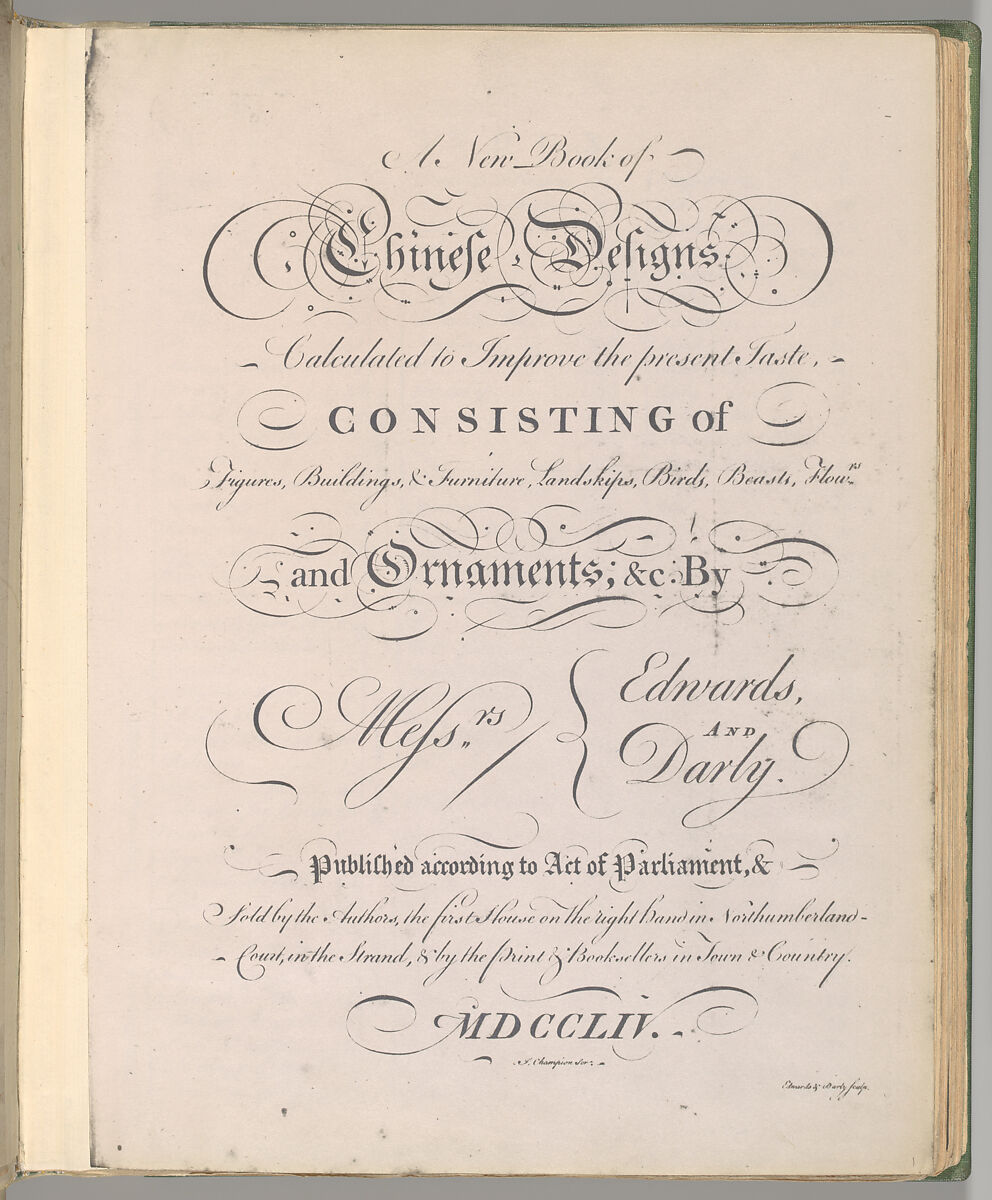 A New Book of
Chineſe Deſigns
Calculated to Improve the present Taste,
CONSISTING of
Figures, Buildings, & Furniture, Landskips, Birds, Beasts, Flowrs
and Ornaments; &c. By
Meſsrs
Edwards,
AND
Darly.
Publiſh'ed according to Act of Parliament, &
Sold by the Authors, the first House on the right hand in Northumberland-
Court, in the Strand, & by the print & Booksellers in Town & Country.
MDCCLIV.
J. Champion Scr.
Edwards & Darly sculp.